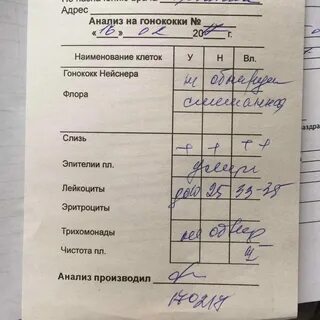 Адрес
Анализ на гонококки №
«16» 02 2017 г.
Наименование клеток У Н Вл.
Гонококк Нейснера не обнаруж
Флора смешанная
Слизь + + + +
Эпителии пл. умерен
Лейкоциты до 10 25 33-35
Эритроциты
Трихомонады не обнар
Чистота пл.
Анализ производил
170217